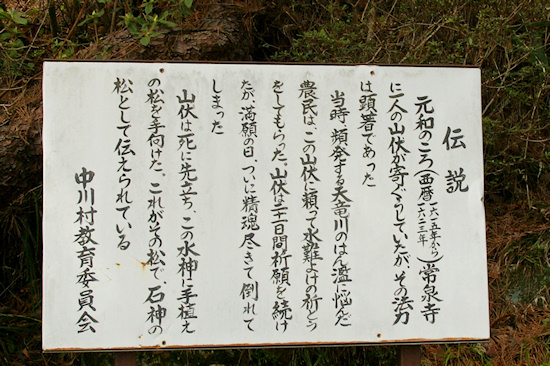 伝説
元和のころ(西暦一六一五年から一六二三年)常泉寺
に一人の山伏が寄ぐうしていたが、その法力
は顕著であった
当時、頻発する天竜川のはん濫に悩んだ
農民は、この山伏に頼って水難よけの祈とう
をしてもらった、山伏は二十一日間祈願を続け
たが、満願の日、ついに精魂尽きて倒れて
しまった
山伏は死に先立ち、この水神に手植え
の松を手向けた、これがその松で、石神の
松として伝えられている
中川村教育委員会